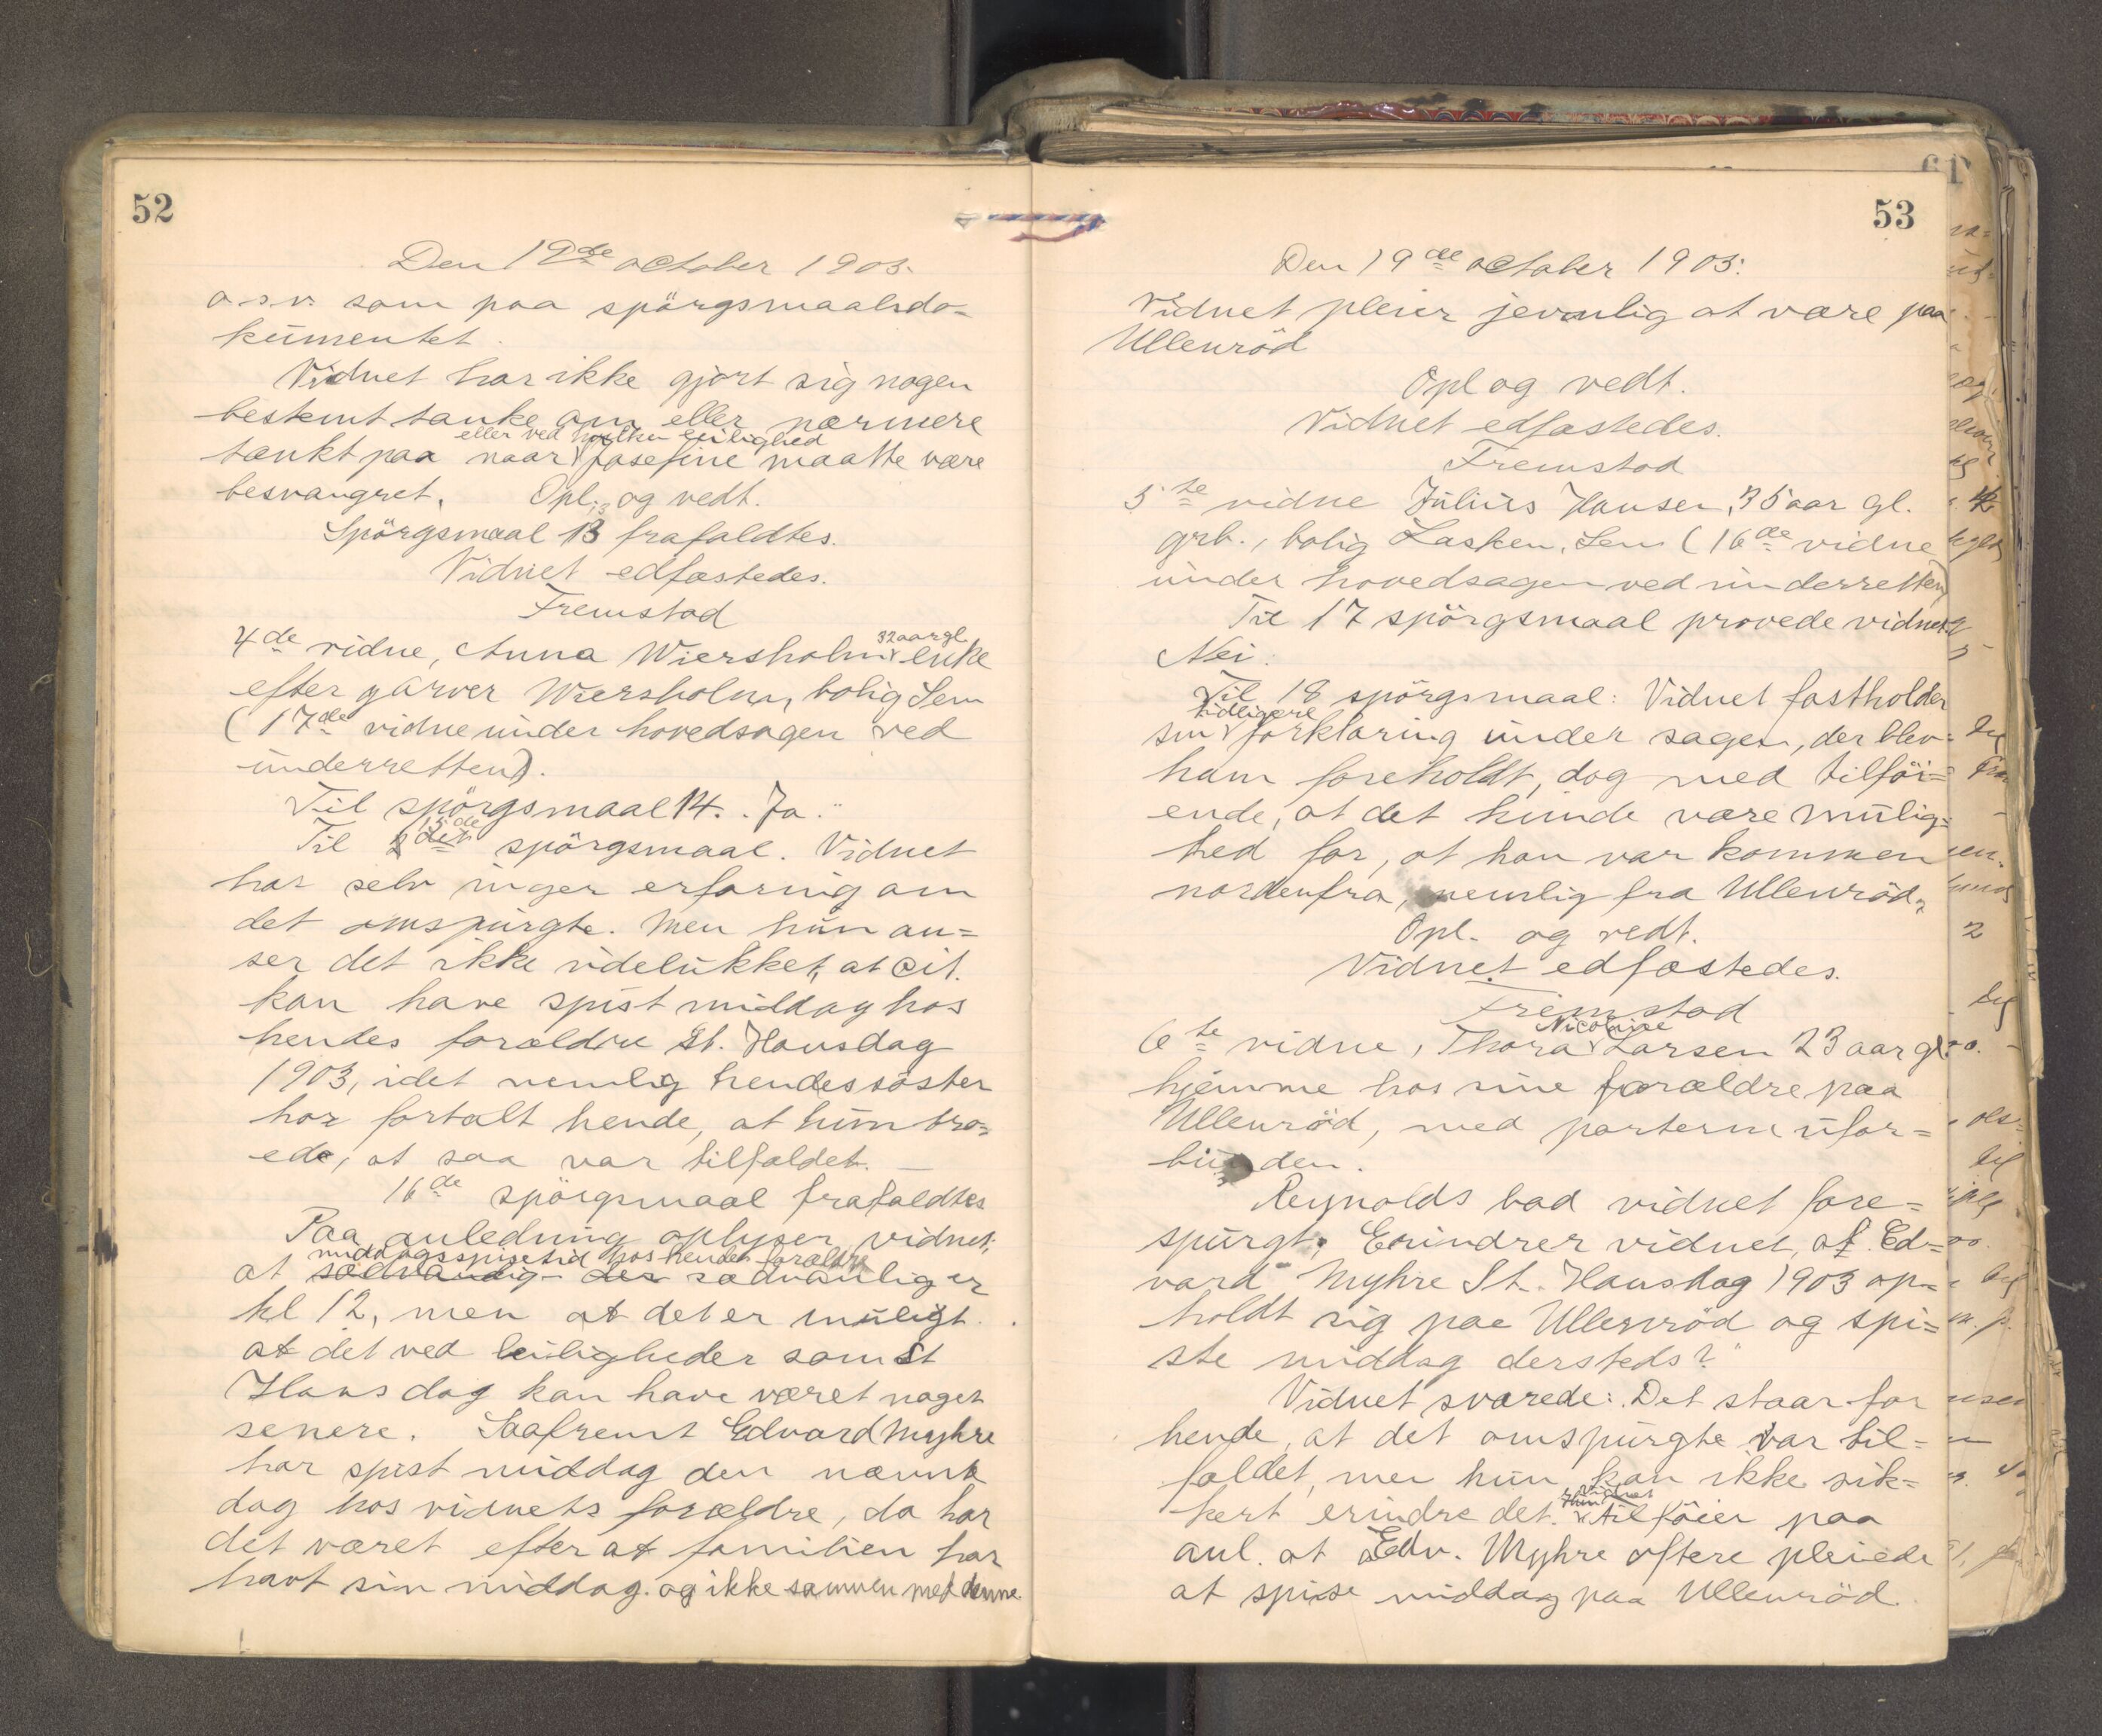 52
Den 19de october 1905.
o.s.v. som paa spörgsmaalsdo=
kumentet.
Vidnet har ikke gjort sig nogen
bestemt tanke om eller nærmere
eller ved hvilken leilighed
tænkt paa naar Josefine maatte være
besvangret. Opl. og vedt.
Spörgsmaal 13 frafaldtes.
Vidnet edfæstedes.
Fremstod
32 aar gl.
4de vidne, Anna Wiersholm enke
efter garver Wiersholm, bolig Sem
(17de vidne under hovedsagen ved
underretten).
Til spörgsmaal 14. Ja.
15de
Til spörgsmaal. Vidnet
har selv ingen erfaring om
det omspurgte. Men hun an=
ser det ikke udelukket, at cit.
kan have spist middag hos
hendes forældre St. Hansdag
1903, idet nemlig hendes söster
har fortalt hende, at hun tro=
ede, at saa var tilfældet. —
16de spörgsmaal frafaldtes
Paa anledning oplyser vidnet,
middagsspisetid hos hendes forældre
at sædvanlig der sædvanlig er
kl 12, men at det er muligt.
at det ved leiligheder som St
Hansdag kan have været noget
senere. Saafremt Edvard Myhre
har spist middag den nævnte
dag hos vidnets forældre, da har
det været efter at familien har
havt sin middag. og ikke sammen med denne.
53
Den 19de october 1905.
Vidnet pleier jevnlig at være paa
Ullenröd
Opl og vedt.
Vidnet edfæstedes.
Fremstod
5te vidne Julius Hansen, 35 aar gl.
grb., bolig Lasken, Sem (16de vidne
under hovedsagen ved underretten)
Til 17 spörgsmaal provede vidnet
Nei.
Til 18 spörgsmaal: Vidnet fastholder
tidligere
sin forklaring under sagen, der blev
ham foreholdt, dog med tilföi=
ende, at det kunde være mulig=
hed for, at han var kommen
nordenfra, nemlig fra Ullenröd.
Opl. og vedt.
Vidnet edfæstedes.
Fremstod
Nicoline
6te vidne, Thora Larsen 23 aar gl
hjemme hos sine forældre paa
Ullenröd, med parterne ufor=
bunden.
Reynolds bad vidnet fore=
spurgt: Erindrer vidnet, at Ed=
vard Myhre St. Hansdag 1903 op=
holdt sig paa Ullenröd og spi=
ste middag dersteds?"
Vidnet svarede: Det staar for
hende, at det omspurgte var til=
fældet, men hun kan ikke sik=
Hun vidnet
kert erindre det. tilföier paa
anl. at Edv. Myhre oftere pleiede
at spise middag paa Ullenröd.
61